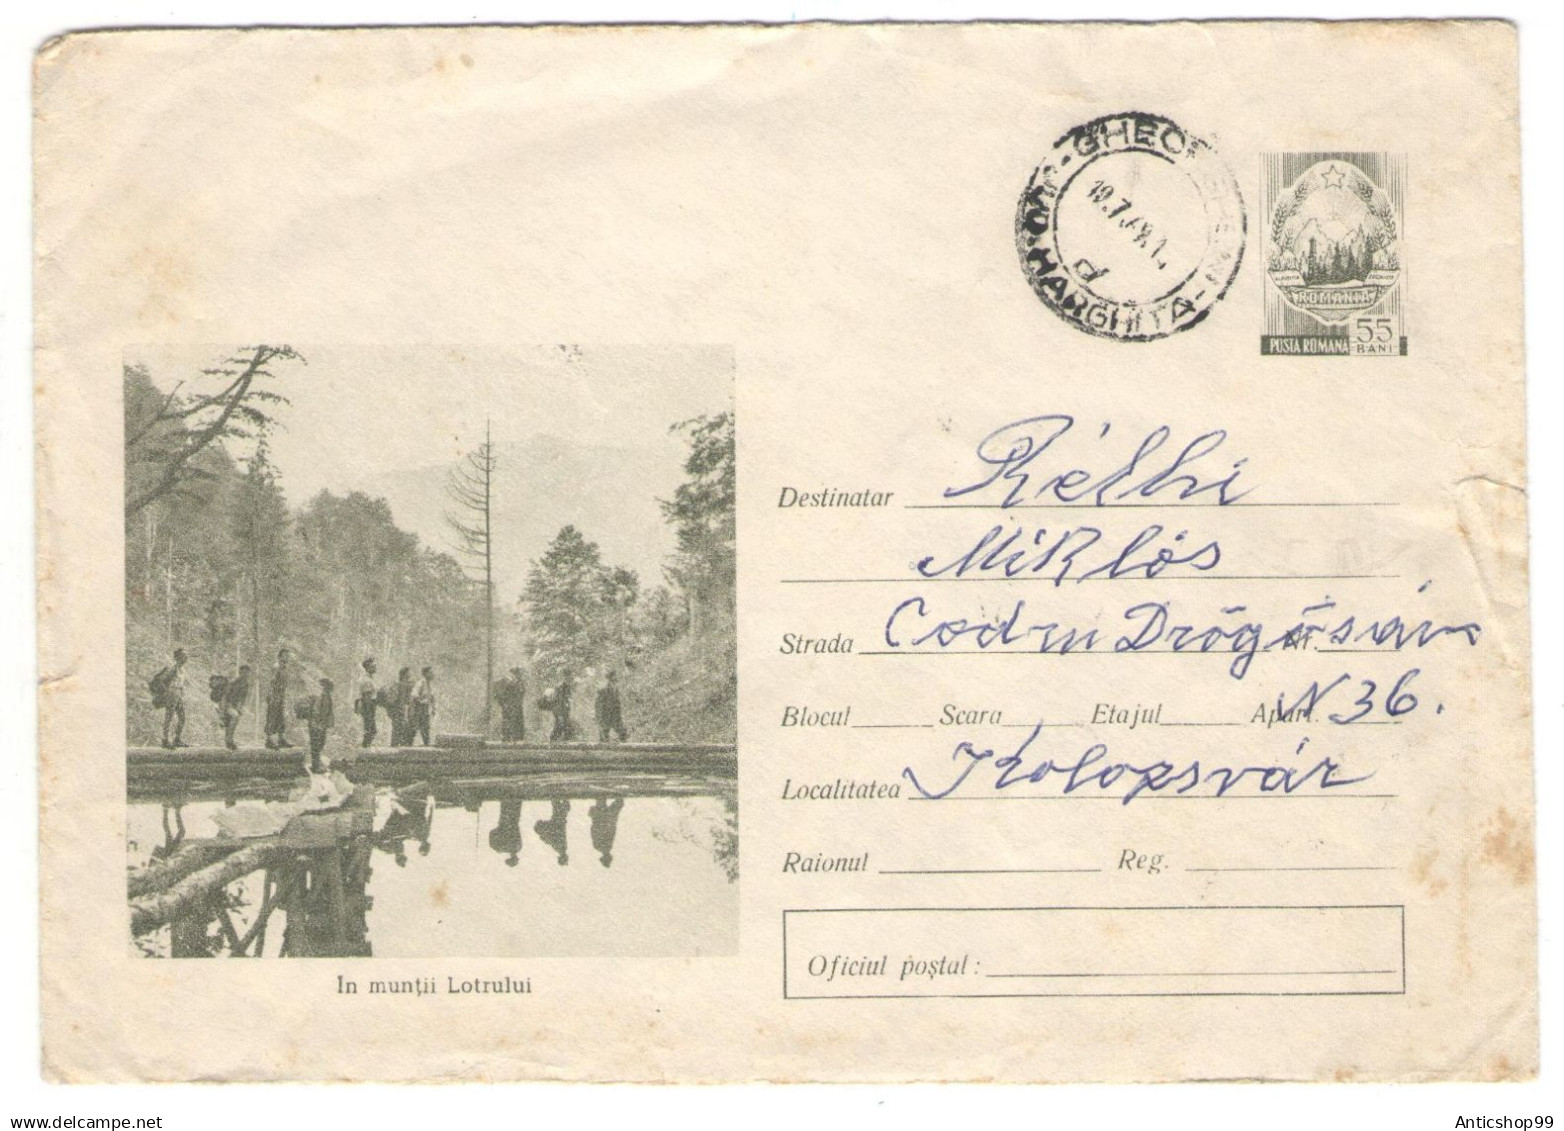 GHEORGHENI
JUD. HARGHITA
ROMANIA
POSTA ROMANA 55 BANI
Destinatar Réthi
Miklós
Strada Codru Drăgăsán Nr.
Blocul Scara Etajul Apart. N 36.
Localitatea Kolozsvár
Raionul Reg.
Oficiul poştal :
In munţii Lotrului
www.delcampe.net
Anticshop99